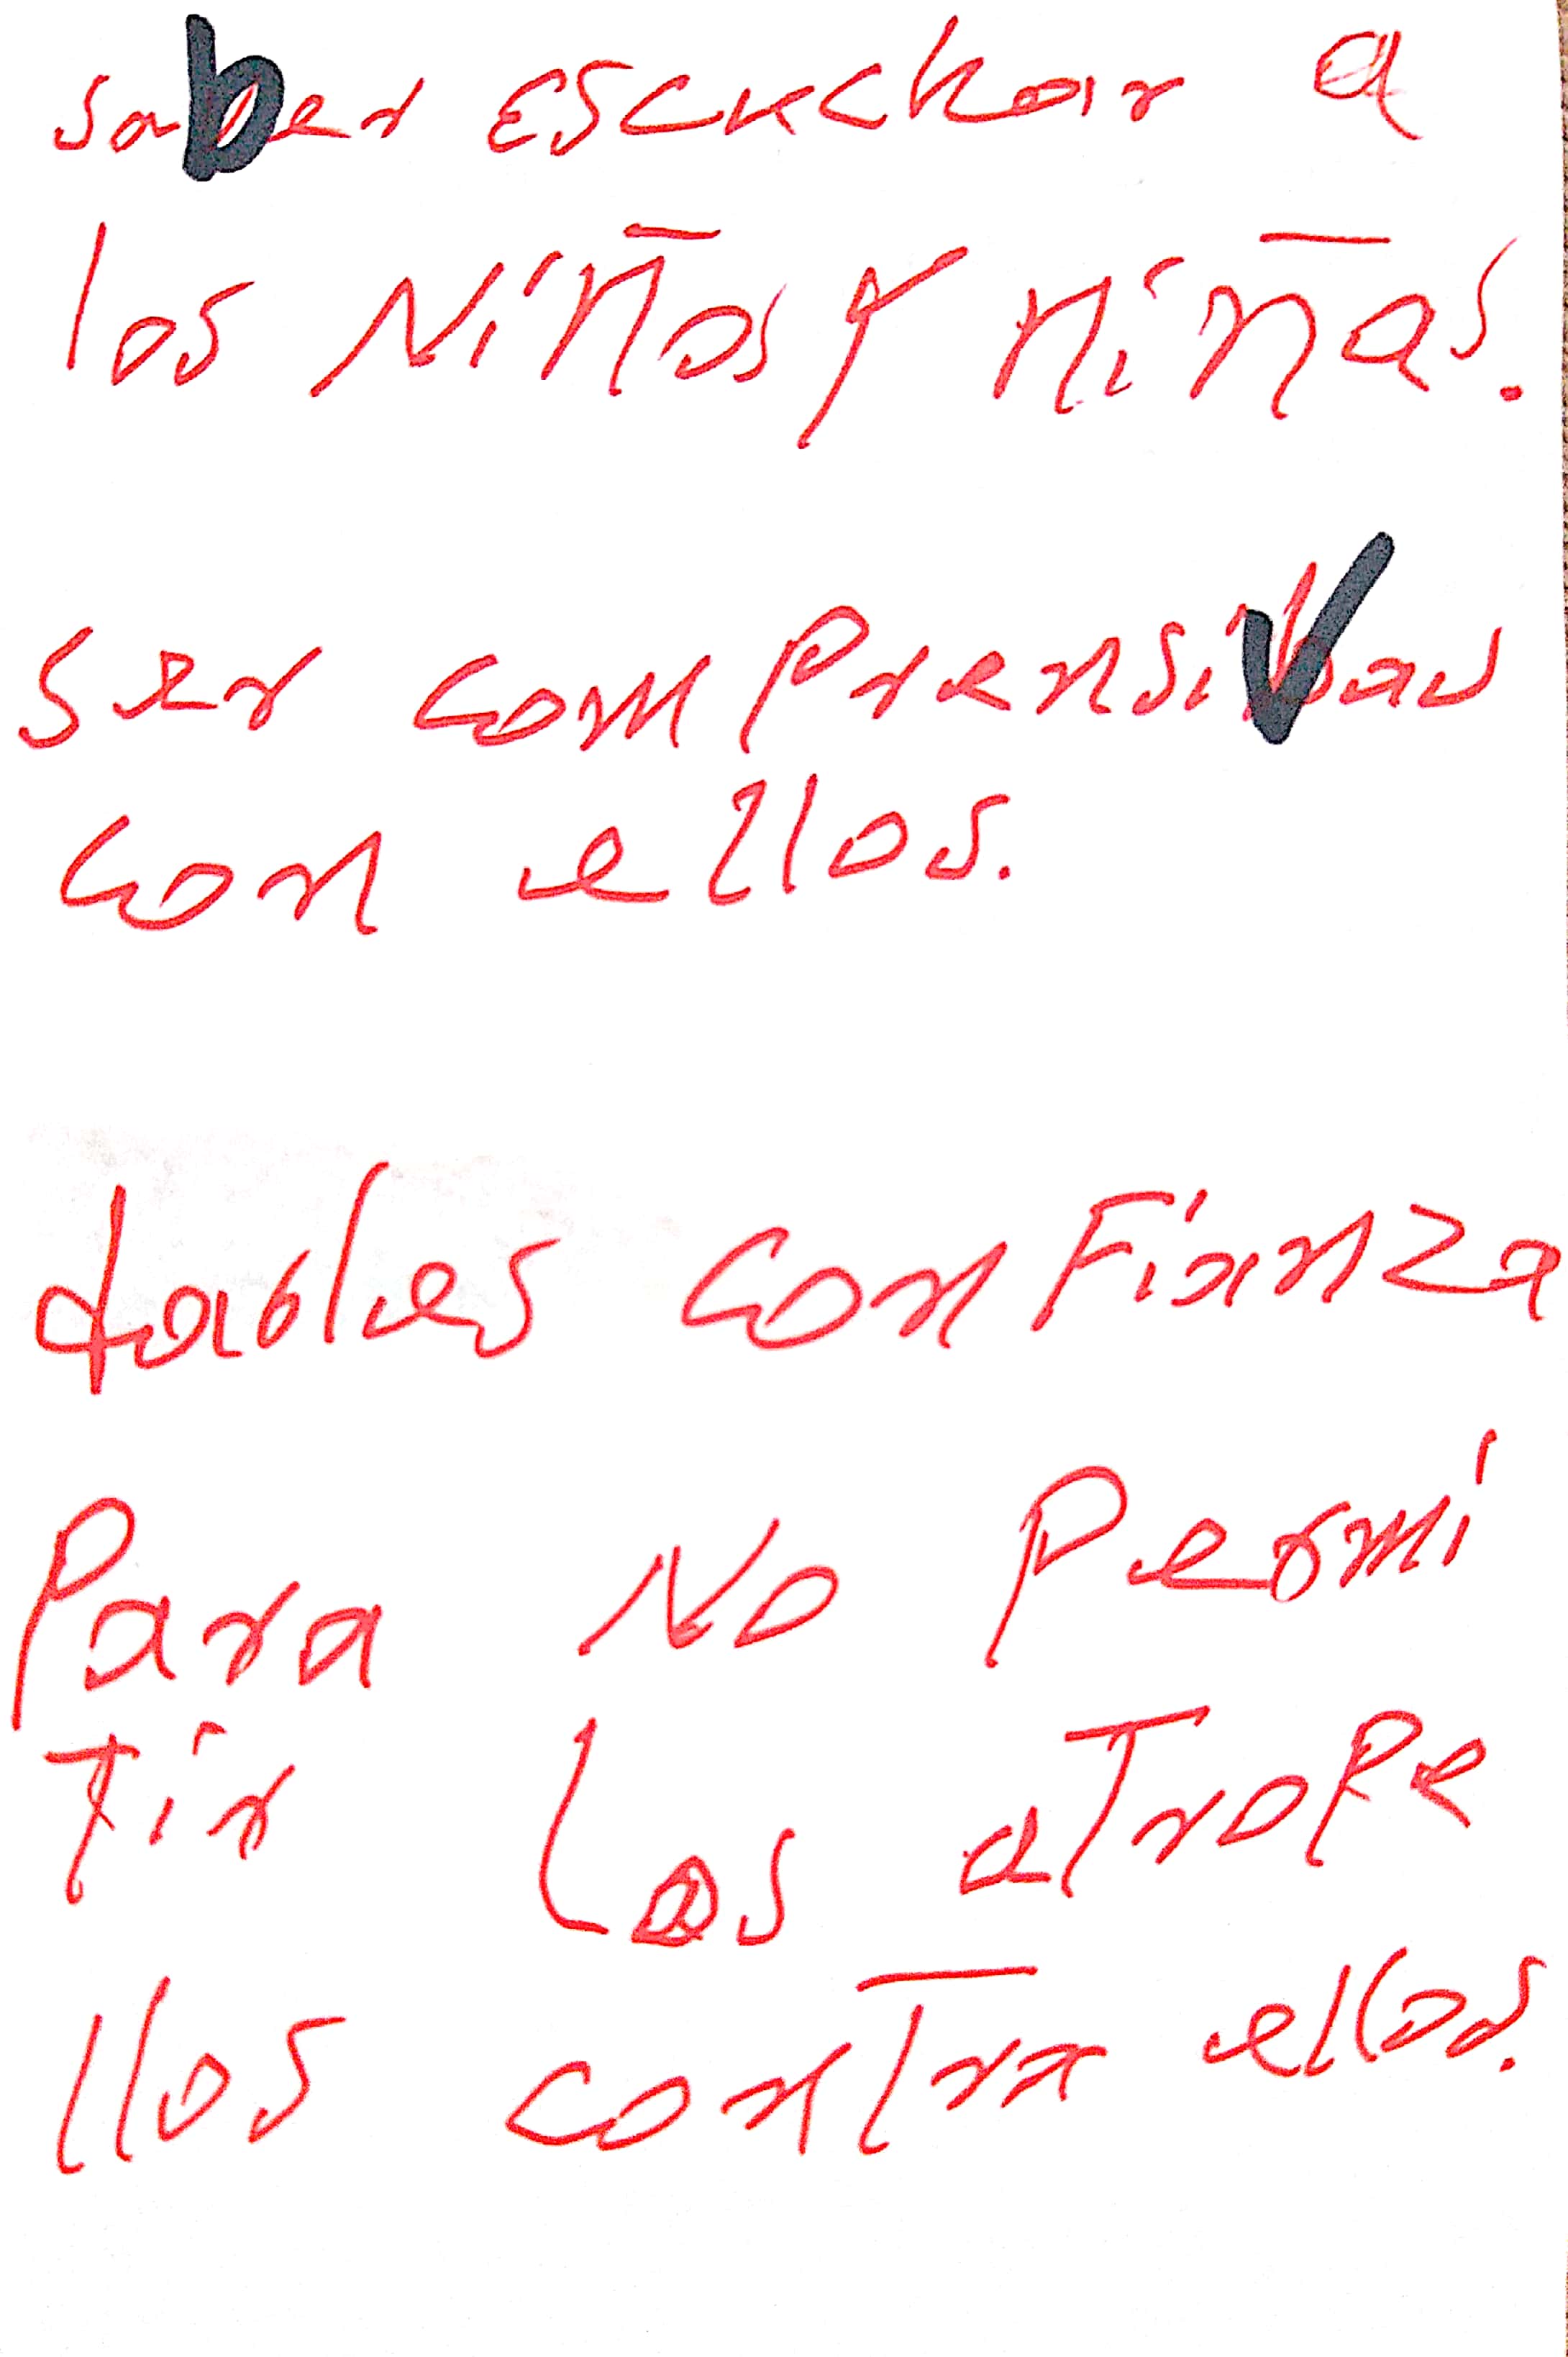 saber escuchar a
los Niños y niñas.
ser comprensivas
con ellos.
darles confianza
Para No Permi
Tir Los aTrope
llos conTra ellos.